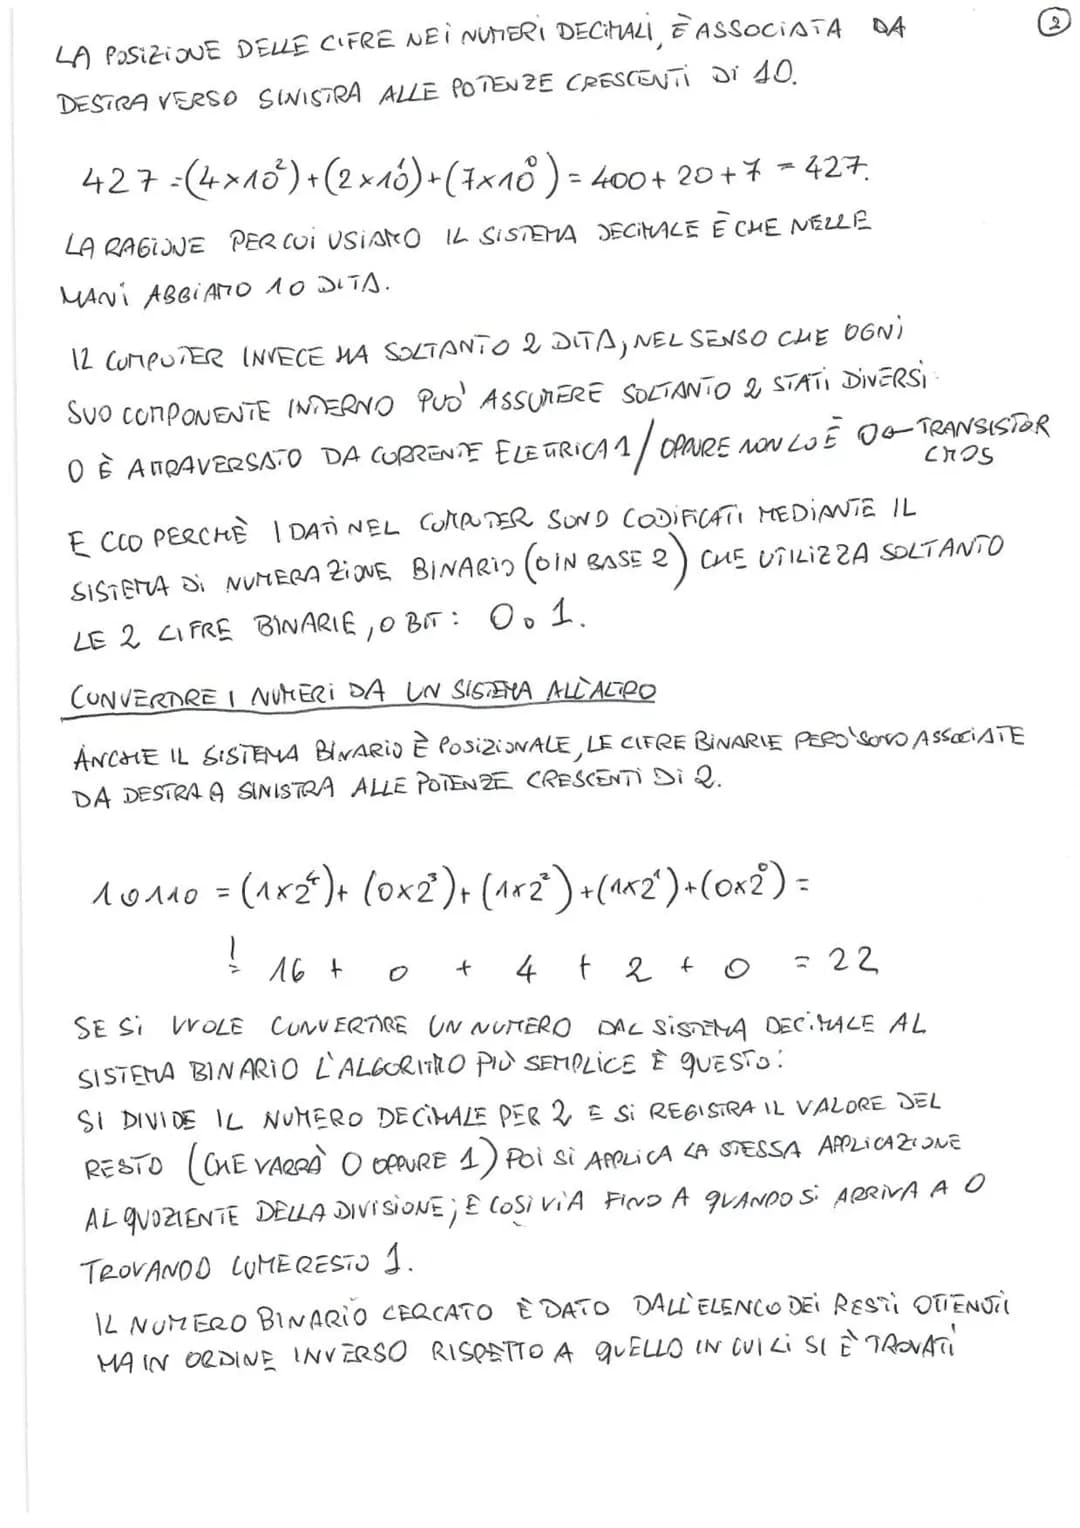 2
LA POSIZIONE DELLE CIFRE NEI NUMERI DECIMALI, È ASSOCIATA DA
DESTRA VERSO SINISTRA ALLE POTENZE CRESCENTI DI 10.
427 = (4×10²)+(2×10¹)+(7×10⁰) = 400+20+7 = 427.
LA RAGIONE PER CUI USIAMO IL SISTEMA DECIMALE È CHE NELLE
MANI ABBIAMO 10 DITA.
IL COMPUTER INVECE HA SOLTANTO 2 DITA, NEL SENSO CHE OGNI
SUO COMPONENTE INTERNO PUO' ASSUMERE SOLTANTO 2 STATI DIVERSI
O È ATTRAVERSATO DA CORRENTE ELETTRICA 1 / OPPURE NON LO È 0 ← TRANSISTOR
CMOS
E CCO PERCHÈ I DATI NEL COMPUTER SONO CODIFICATI MEDIANTE IL
SISTEMA DI NUMERAZIONE BINARIO (O IN BASE 2) CHE UTILIZZA SOLTANTO
LE 2 CIFRE BINARIE, O BIT: 0 o 1.
CONVERTIRE I NUMERI DA UN SISTEMA ALL'ALTRO
ANCHE IL SISTEMA BINARIO È POSIZIONALE, LE CIFRE BINARIE PERO' SONO ASSOCIATE
DA DESTRA A SINISTRA ALLE POTENZE CRESCENTI DI 2.
10110 = (1×2⁴)+(0×2³)+(1×2²)+(1×2¹)+(0×2⁰) =
! = 16 + 0 + 4 + 2 + 0 = 22
SE SI VUOLE CONVERTIRE UN NUMERO DAL SISTEMA DECIMALE AL
SISTEMA BINARIO L'ALGORITMO PIÙ SEMPLICE È QUESTO:
SI DIVIDE IL NUMERO DECIMALE PER 2 E SI REGISTRA IL VALORE DEL
RESTO (CHE VARRÀ 0 OPPURE 1) POI SI APPLICA LA STESSA APPLICAZIONE
AL QUOZIENTE DELLA DIVISIONE; E COSI VIA FINO A QUANDO SI ARRIVA A 0
TROVANDO COME RESTO 1.
IL NUMERO BINARIO CERCATO È DATO DALL'ELENCO DEI RESTI OTTENUTI
MA IN ORDINE INVERSO RISPETTO A QUELLO IN CUI LI SI È TROVATI